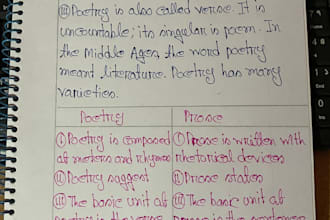 (iii) Poetry is also called verse. It is
uncountable; its singular is poem. In
the Middle Ages, the word poetry
meant literature. Poetry has many
varieties.
Poetry Prose
(i) Poetry is composed (i) Prose is written with
of meters and rhymes rhetorical devices
(ii) Poetry suggest (ii) Prose states
(iii) The basic unit of (iii) The basic unit of